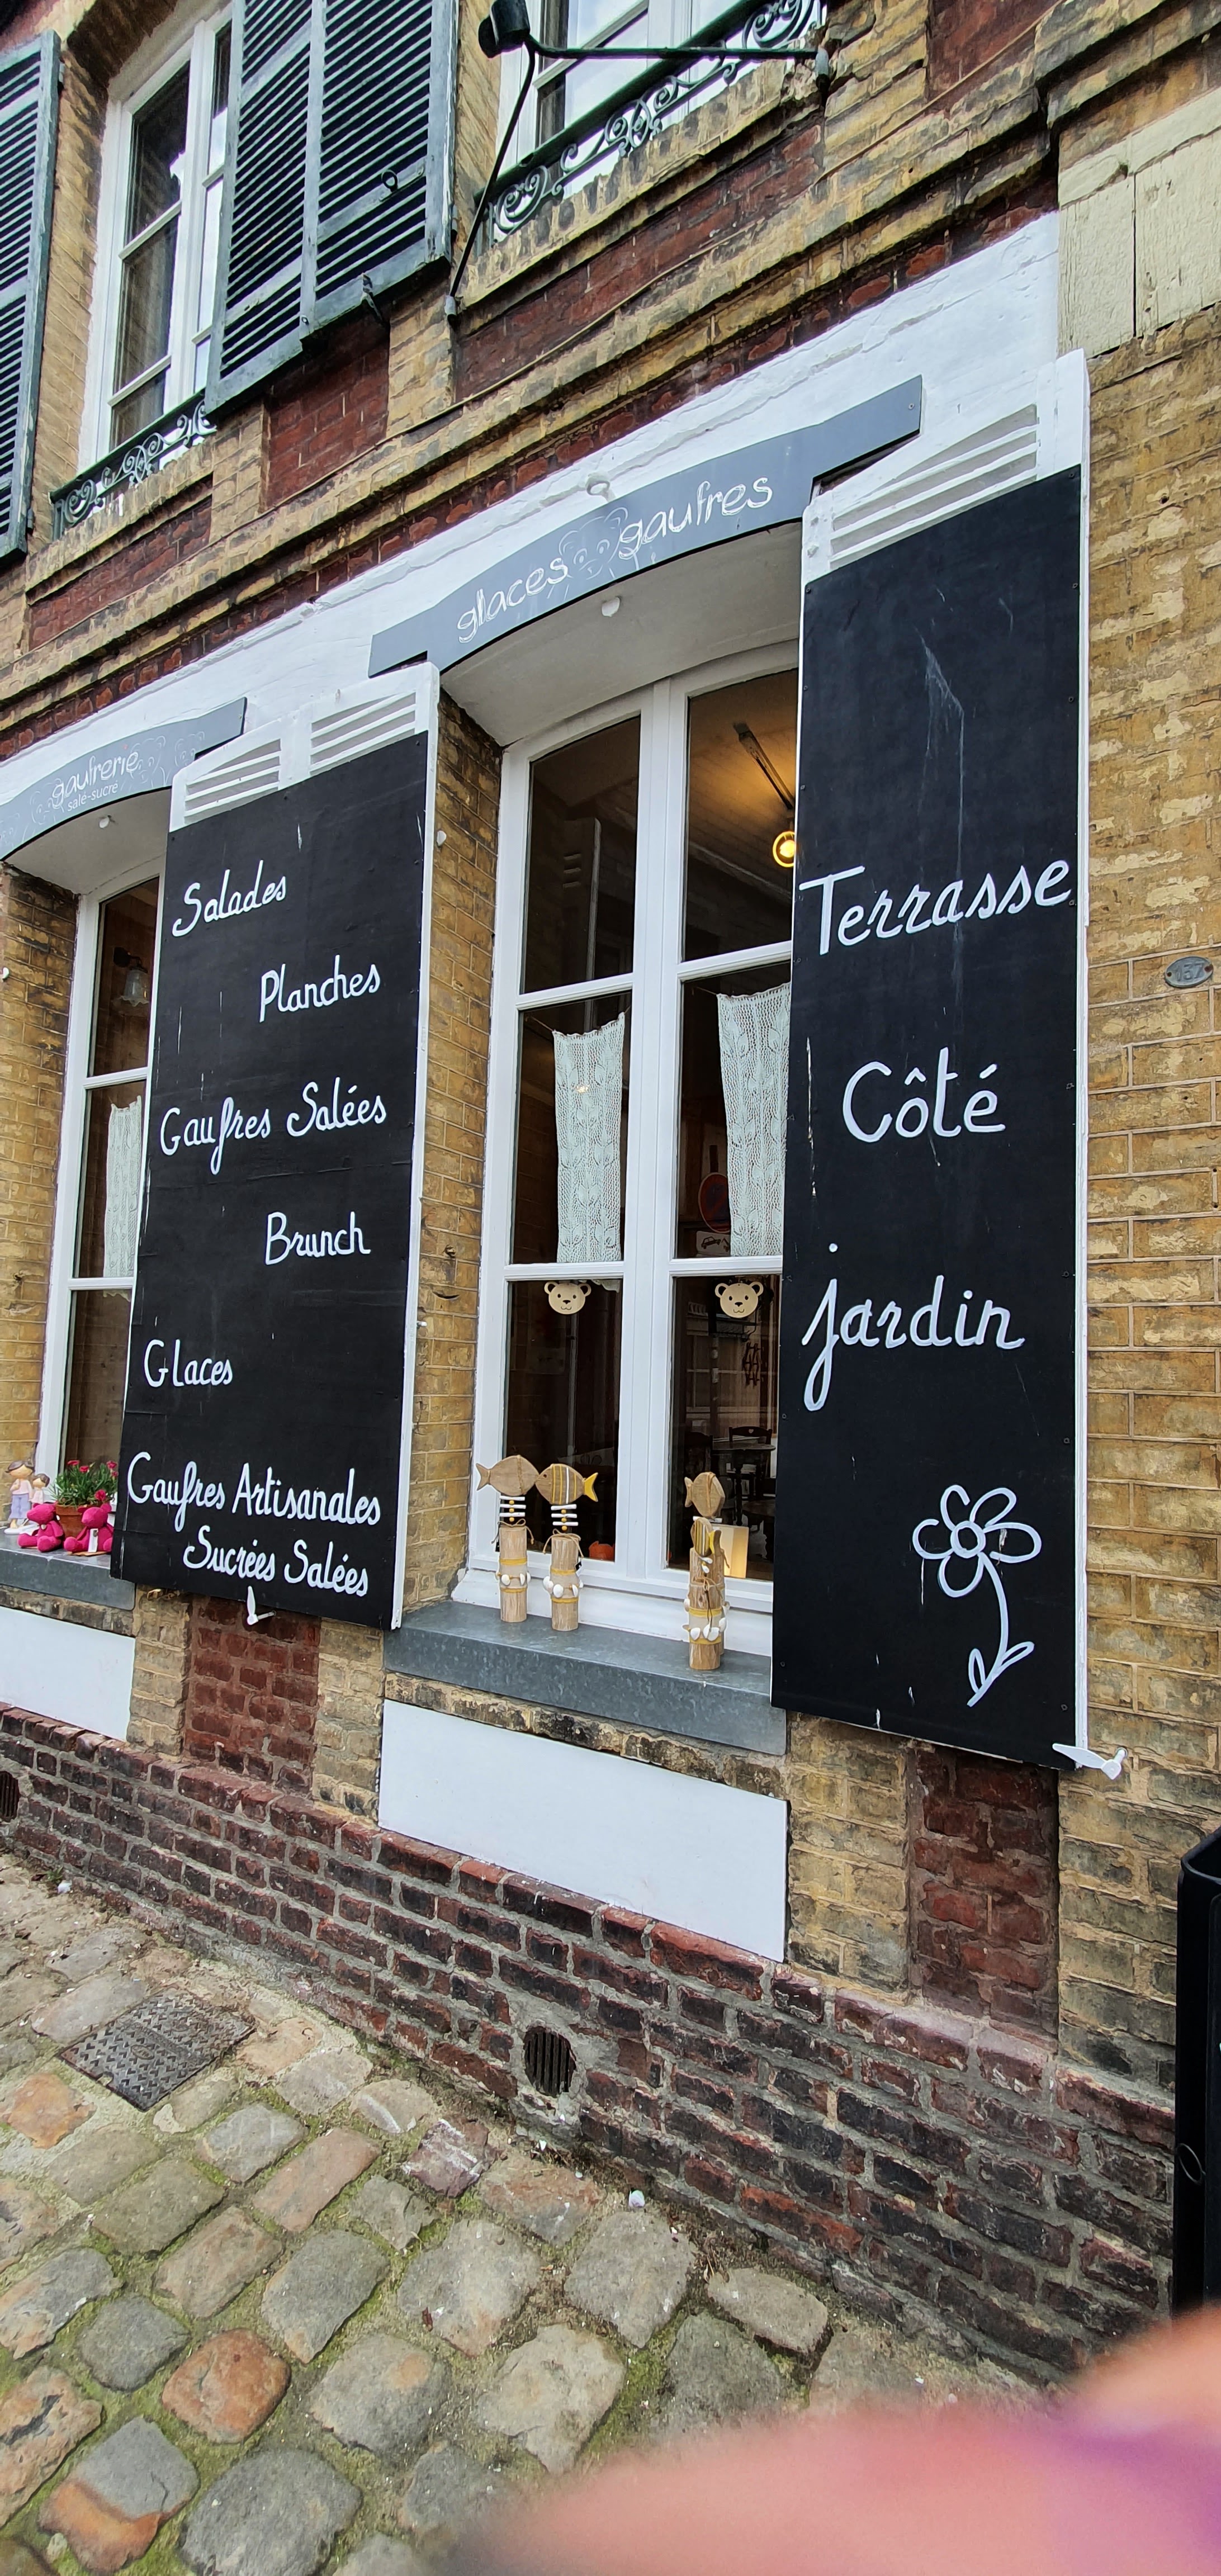 glaces gaufres
gaufrerie
salé-sucré
Salades
Planches
Gaufres Salées
Brunch
Glaces
Gaufres Artisanales
Sucrées Salées
Terrasse
Côté
jardin
137